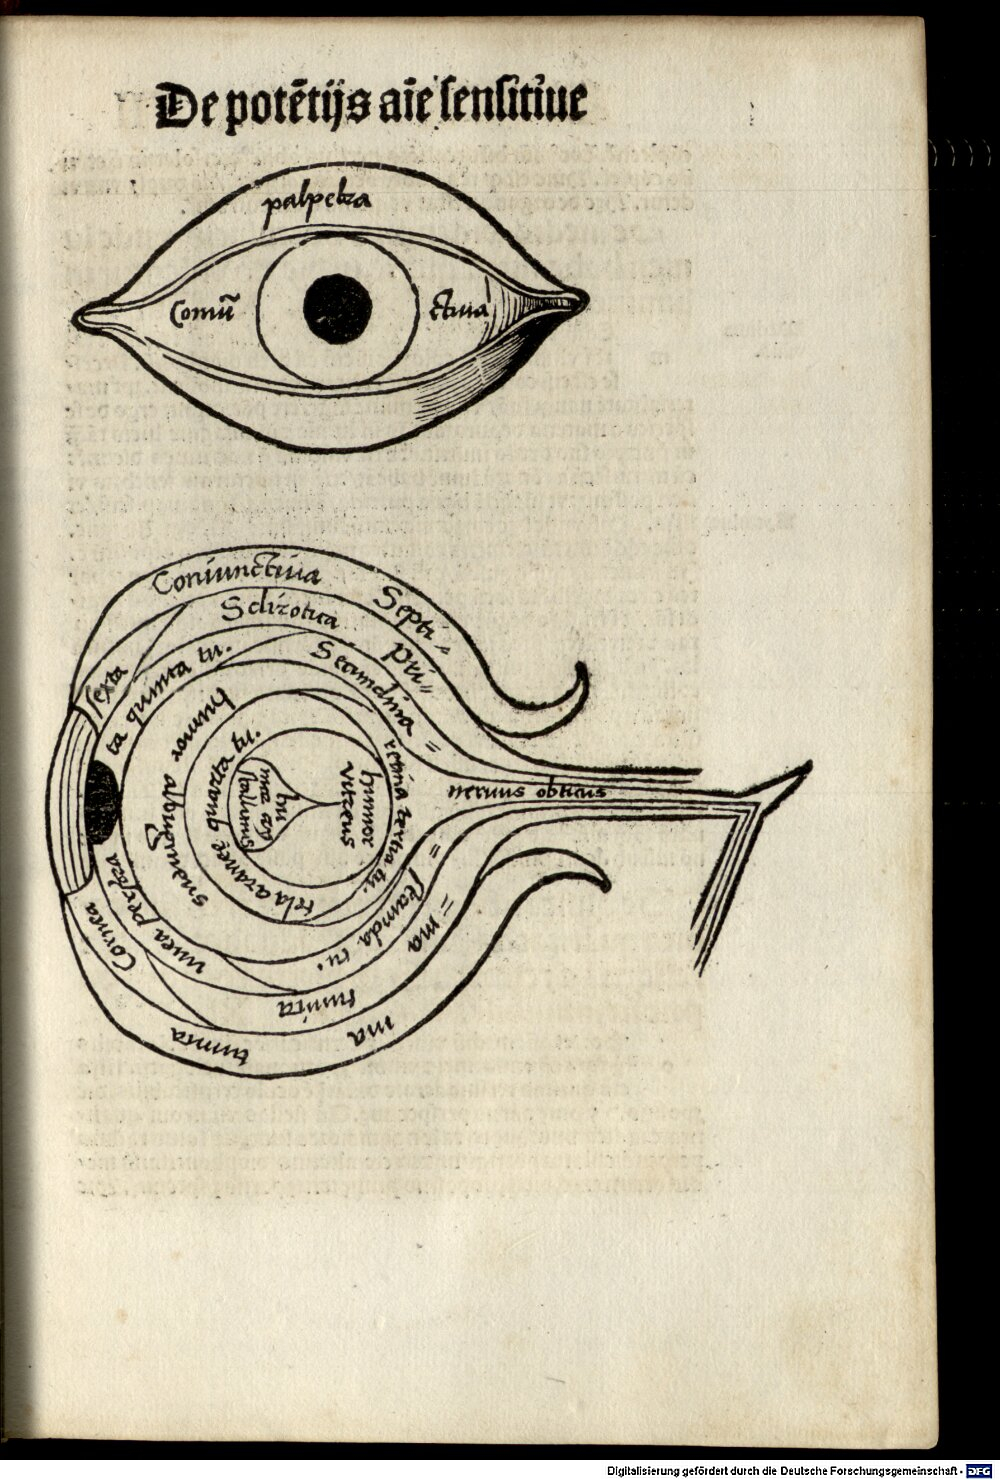 De potētijs aīe sensitiue
palpebra
Comū ctiua
Coniunctiua Septi=
Sclirotica pri=
Secundina =
sexta
ta quinta tu.
humor albugineus
tela aranee quarta tu.
humor vitreus
retina tertia tu.
neruus obticus
Cornea tunica
vuea perfora
secunda tu.
tunica
=ma
ma
Digitalisierung gefördert durch die Deutsche Forschungsgemeinschaft - DFG